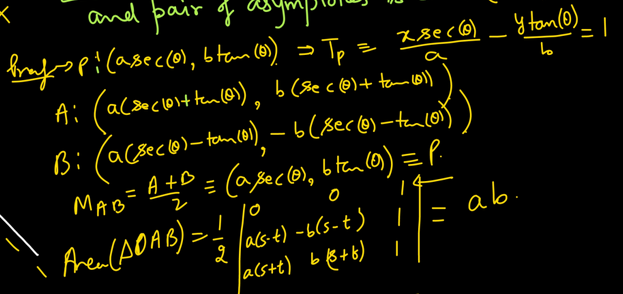 and pair of asymptotes is
Proof → P: (a sec(θ), b tan(θ)) ⇒ T_P ≡ x sec(θ)/a − y tan(θ)/b = 1
A: (a(sec(θ)+tan(θ)), b(sec(θ)+tan(θ)))
B: (a(sec(θ)−tan(θ)), −b(sec(θ)−tan(θ)))
M_AB = A+B/2 ≡ (a sec(θ), b tan(θ)) ≡ P.
Area(ΔOAB) = 1/2 | 0 0 1 ; a(s-t) -b(s-t) 1 ; a(s+t) b(s+t) 1 | = ab.